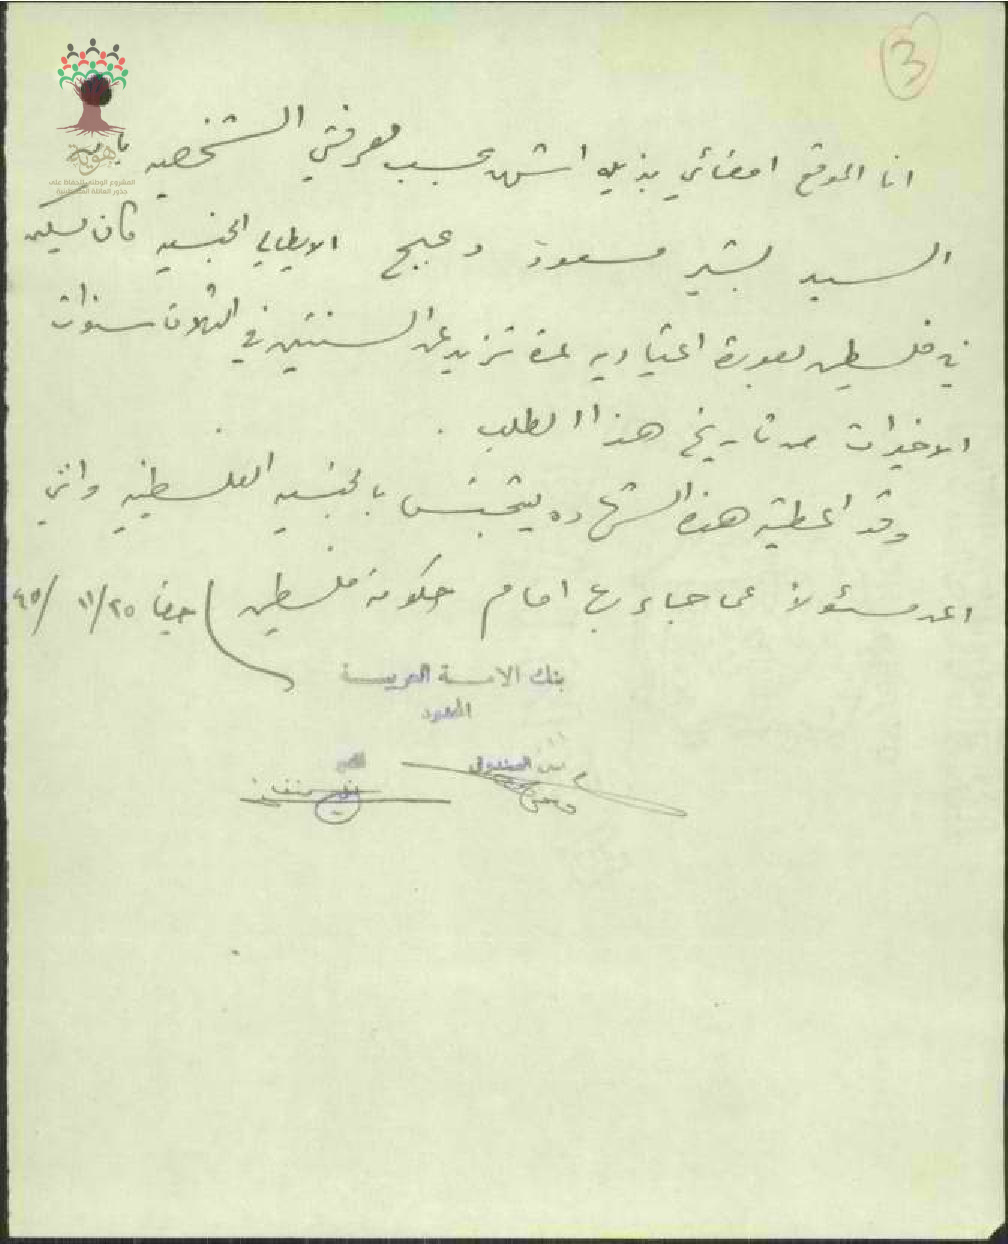 3
هوية
المشروع الوطني للحفاظ على
جذور العائلة الفلسطينية
انا الموقع امضائي بذيله اشهد بحسب معرفتي الشخصيه بان
السيد بشير مسعود دعبج الايطالي الجنسيه كان يسكن
في فلسطين بصورة اعتياديه لمدة تزيد عن السنتين في الثلاث سنوات
الاخيرات من تاريخ هذا الطلب .
وقد اعطيته هذه الشهاده ليتجنس بالجنسيه الفلسطينيه وانني
اعد مسئولاً عما جاء بها امام حكومة فلسطين / حيفا ٢٥/١١/٤٥
بنك الامة العربية
المحدود
امين الصندوق
المدير